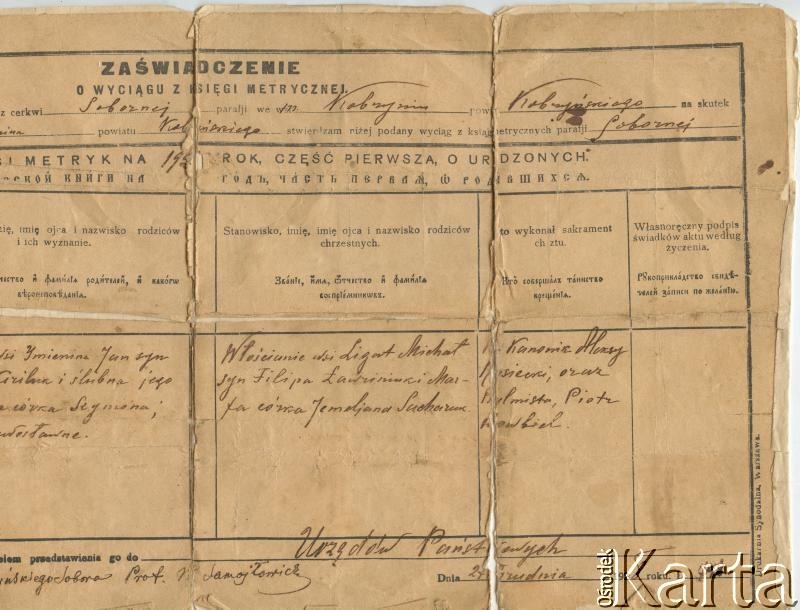 ZAŚWIADCZENIE
O WYCIĄGU Z KSIĘGI METRYCZNEJ.
z cerkwi Sobornej parafji we w/m Kobryniu pow. Kobryńskiego na skutek
powiatu Kobryńskiego stwierdzam niżej podany wyciąg z ksiąg metrycznych parafji Sobornej
GI METRYK NA 192 ROK, CZĘŚĆ PIERWSZA, O URODZONYCH.
ской книги на годъ, часть первая, ѡ родившихсѧ.
imię ojca i nazwisko rodziców
i ich wyznanie.
чество й фамилїа родителей, й какогѡ
вѣроисповѣданїа.
Stanowisko, imię, imię ojca i nazwisko rodziców
chrzestnych.
Званїе, йма, ѻтчество й фамилїа
воспрїемниковъ.
to wykonał sakrament
chrztu.
Кто совершалъ таинство
крещенїа.
Własnoręczny podpis
świadków aktu według
życzenia.
Рꙋкоприкладство свидѣ-
телей записи по желанїю.
wsi Imienina Jan syn
Kiriluk i ślubna jego
córka Szymona;
wosławne.
Włościanie wsi Ligat Michał
syn Filipa Ławriniuk i Mar-
fa córka Jemeljana Sacharuk.
Kanonik Alexy
siecki, oraz
Psalmista, Piotr
celem przedstawienia go do Urzędów Państwowych
yńskiego Sobora Prot. Samojłowicz
Dnia Grudnia 19 roku.
Drukarnia Synodalna, Warszawa.
Ośrodek
Karta